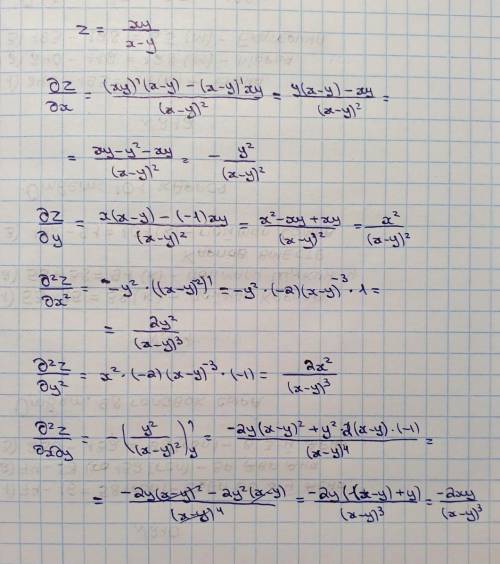 z = xy/(x-y)
∂z/∂x = ((xy)'(x-y) - (x-y)'xy)/(x-y)² = (y(x-y) - xy)/(x-y)² =
= (xy-y²-xy)/(x-y)² = - y²/(x-y)²
∂z/∂y = (x(x-y) - (-1)xy)/(x-y)² = (x²-xy+xy)/(x-y)² = x²/(x-y)²
∂²z/∂x² = -y² · ((x-y)⁻²)' = -y² · (-2)(x-y)⁻³ · 1 =
= 2y²/(x-y)³
∂²z/∂y² = x² · (-2)(x-y)⁻³ · (-1) = 2x²/(x-y)³
∂²z/∂x∂y = -(y²/(x-y)²)'y = (-2y(x-y)² + y² · 2(x-y) · (-1))/(x-y)⁴ =
= (-2y(x-y)² - 2y²(x-y))/(x-y)⁴ = (-2y((x-y)+y))/(x-y)³ = -2xy/(x-y)³